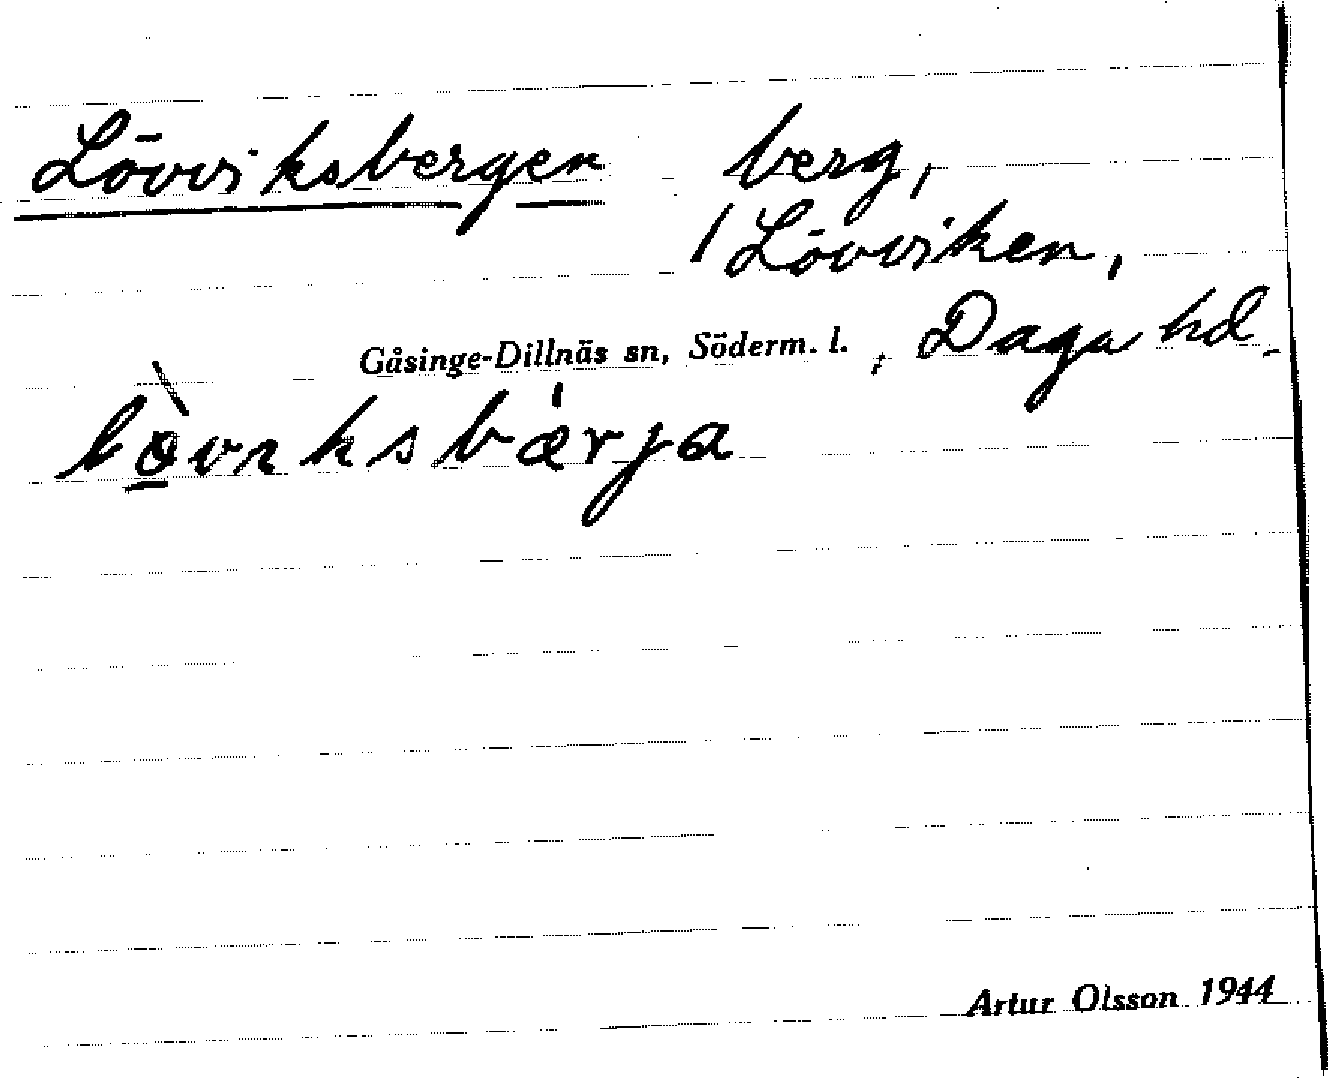 Lövviksbergen berg,
/ Lövviken,
Gåsinge-Dillnäs sn, Söderm. l. , Daga hd.
lövıksbærja
Artur Olsson 1944